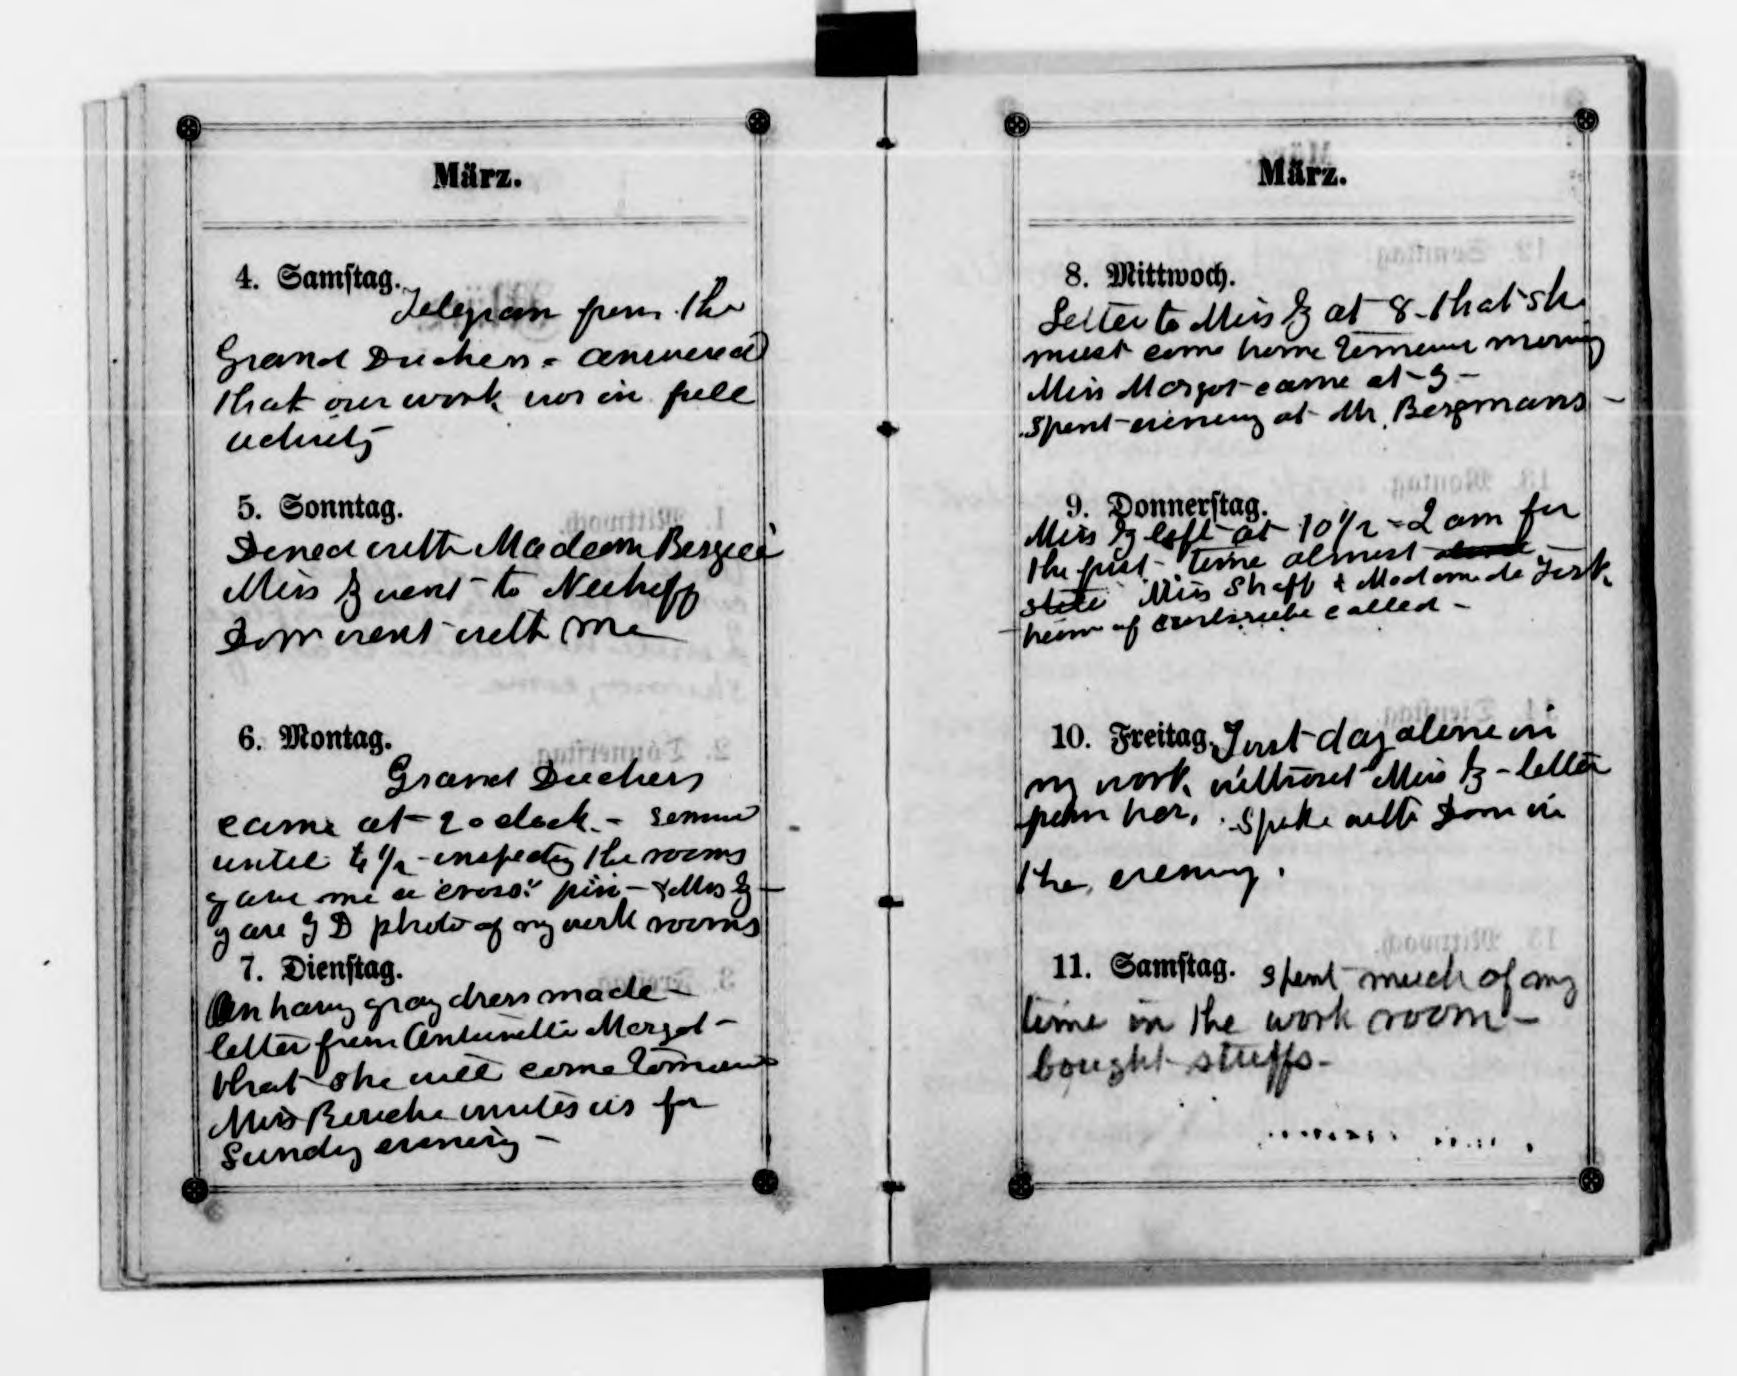 März.
4. Samstag.
Telegram from the
Grand Duchess - answered
that our work was in full
activity
5. Sonntag.
Dined with Madam
Miss Z went to
Dorr went with me
6. Montag.
Grand Duchess
came at 2 oclock -
until 4 1/2 - inspecting the rooms
gave me a cross pin - & Miss Z -
gave G D photo of my work rooms
7. Dienstag.
Am having gray dress made -
letter from Antoinette Margot -
that she will come tomorrow
Miss invites us for
Sunday evening -
März.
8. Mittwoch.
Letter to Miss Z at 8 - that she
must come home tomorrow morning
Miss Margot came at 3 -
spent evening at Mr. Bergmans -
9. Donnerstag.
Miss Z left at 10 1/2 - I am for
the first time almost alone
Miss Shaff & Madame de Türk-
heim of Carlsruhe called -
10. Freitag. First day alone in
my work without Miss Z - letter
from her. Spoke with Dorr in
the evening.
11. Samstag. spent much of my
time in the work room -
bought stuffs -